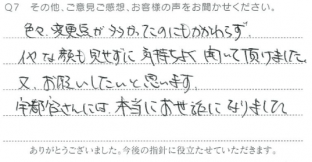 Q7 その他、ご意見ご感想、お客様の声をお聞かせください。
色々、変更点がうつかってこのにもかかわらず、
イヤな顔も見せずに気持ちよく聞いて頂けました。
又、お願いしたいと思います。
宇都宮さんには、本当にお世話になりまして
ありがとうございました。今後の指針に役立たせていただきます。